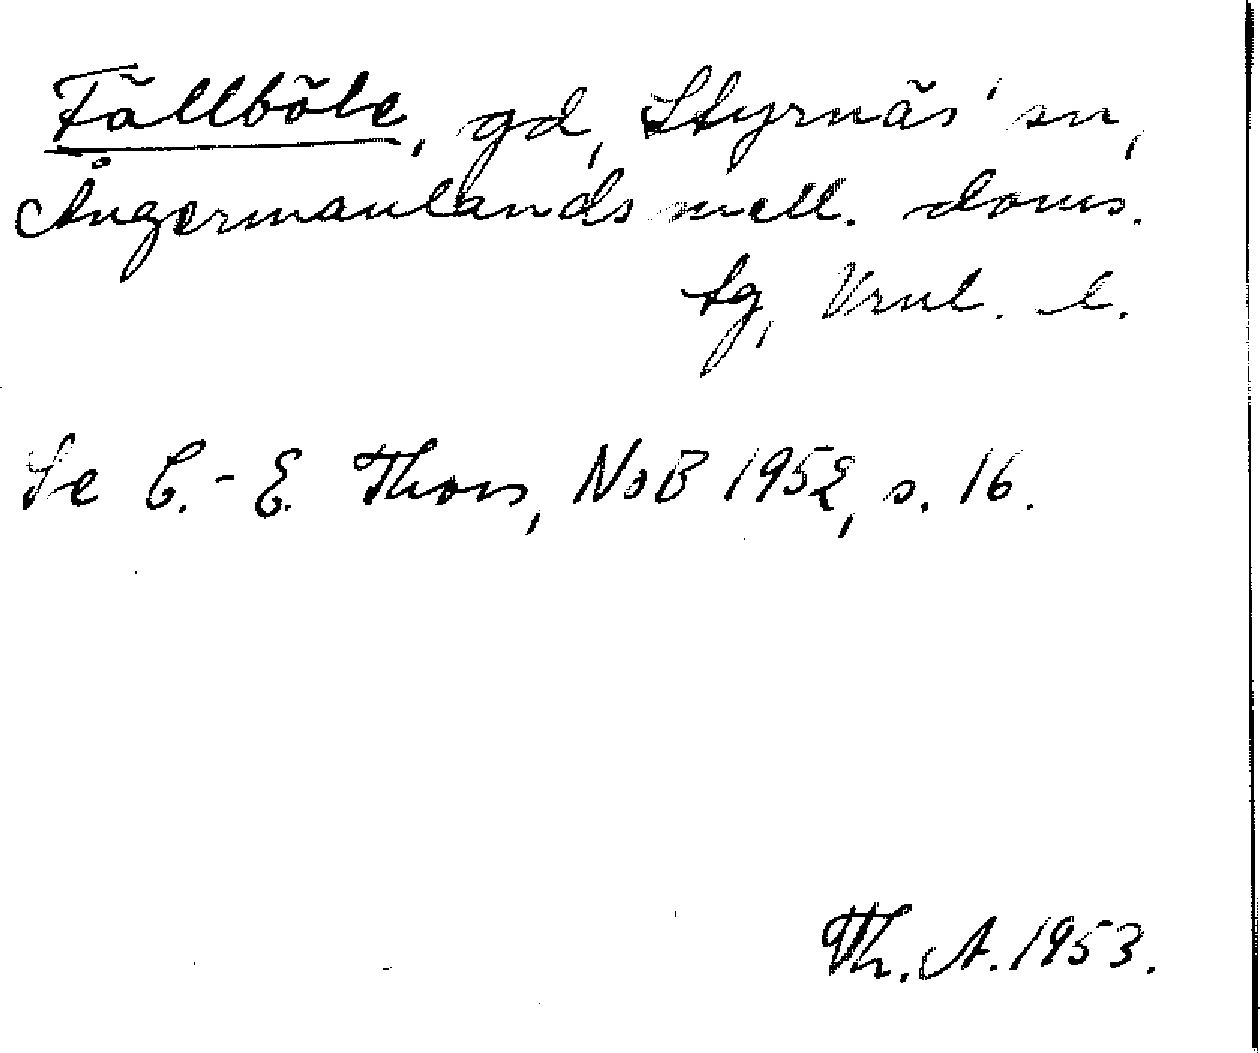 Fällböle, gd, Styrnäs' sn,
Ångermanlands mell. doms.
tg, Vrnl. l.
Se C.-E. Thors, NoB 1952, s. 16.
Th. A. 1953.